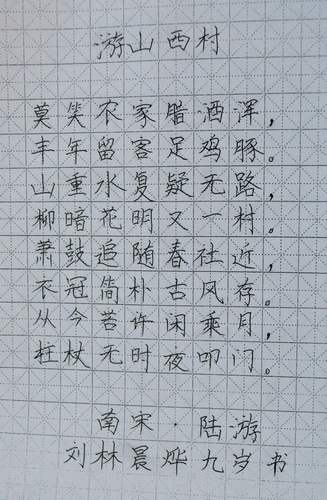 游山西村
莫笑农家腊酒浑，
丰年留客足鸡豚。
山重水复疑无路，
柳暗花明又一村。
萧鼓追随春社近，
衣冠简朴古风存。
从今若许闲乘月，
拄杖无时夜叩门。
南宋·陆游
刘林晨烨九岁书